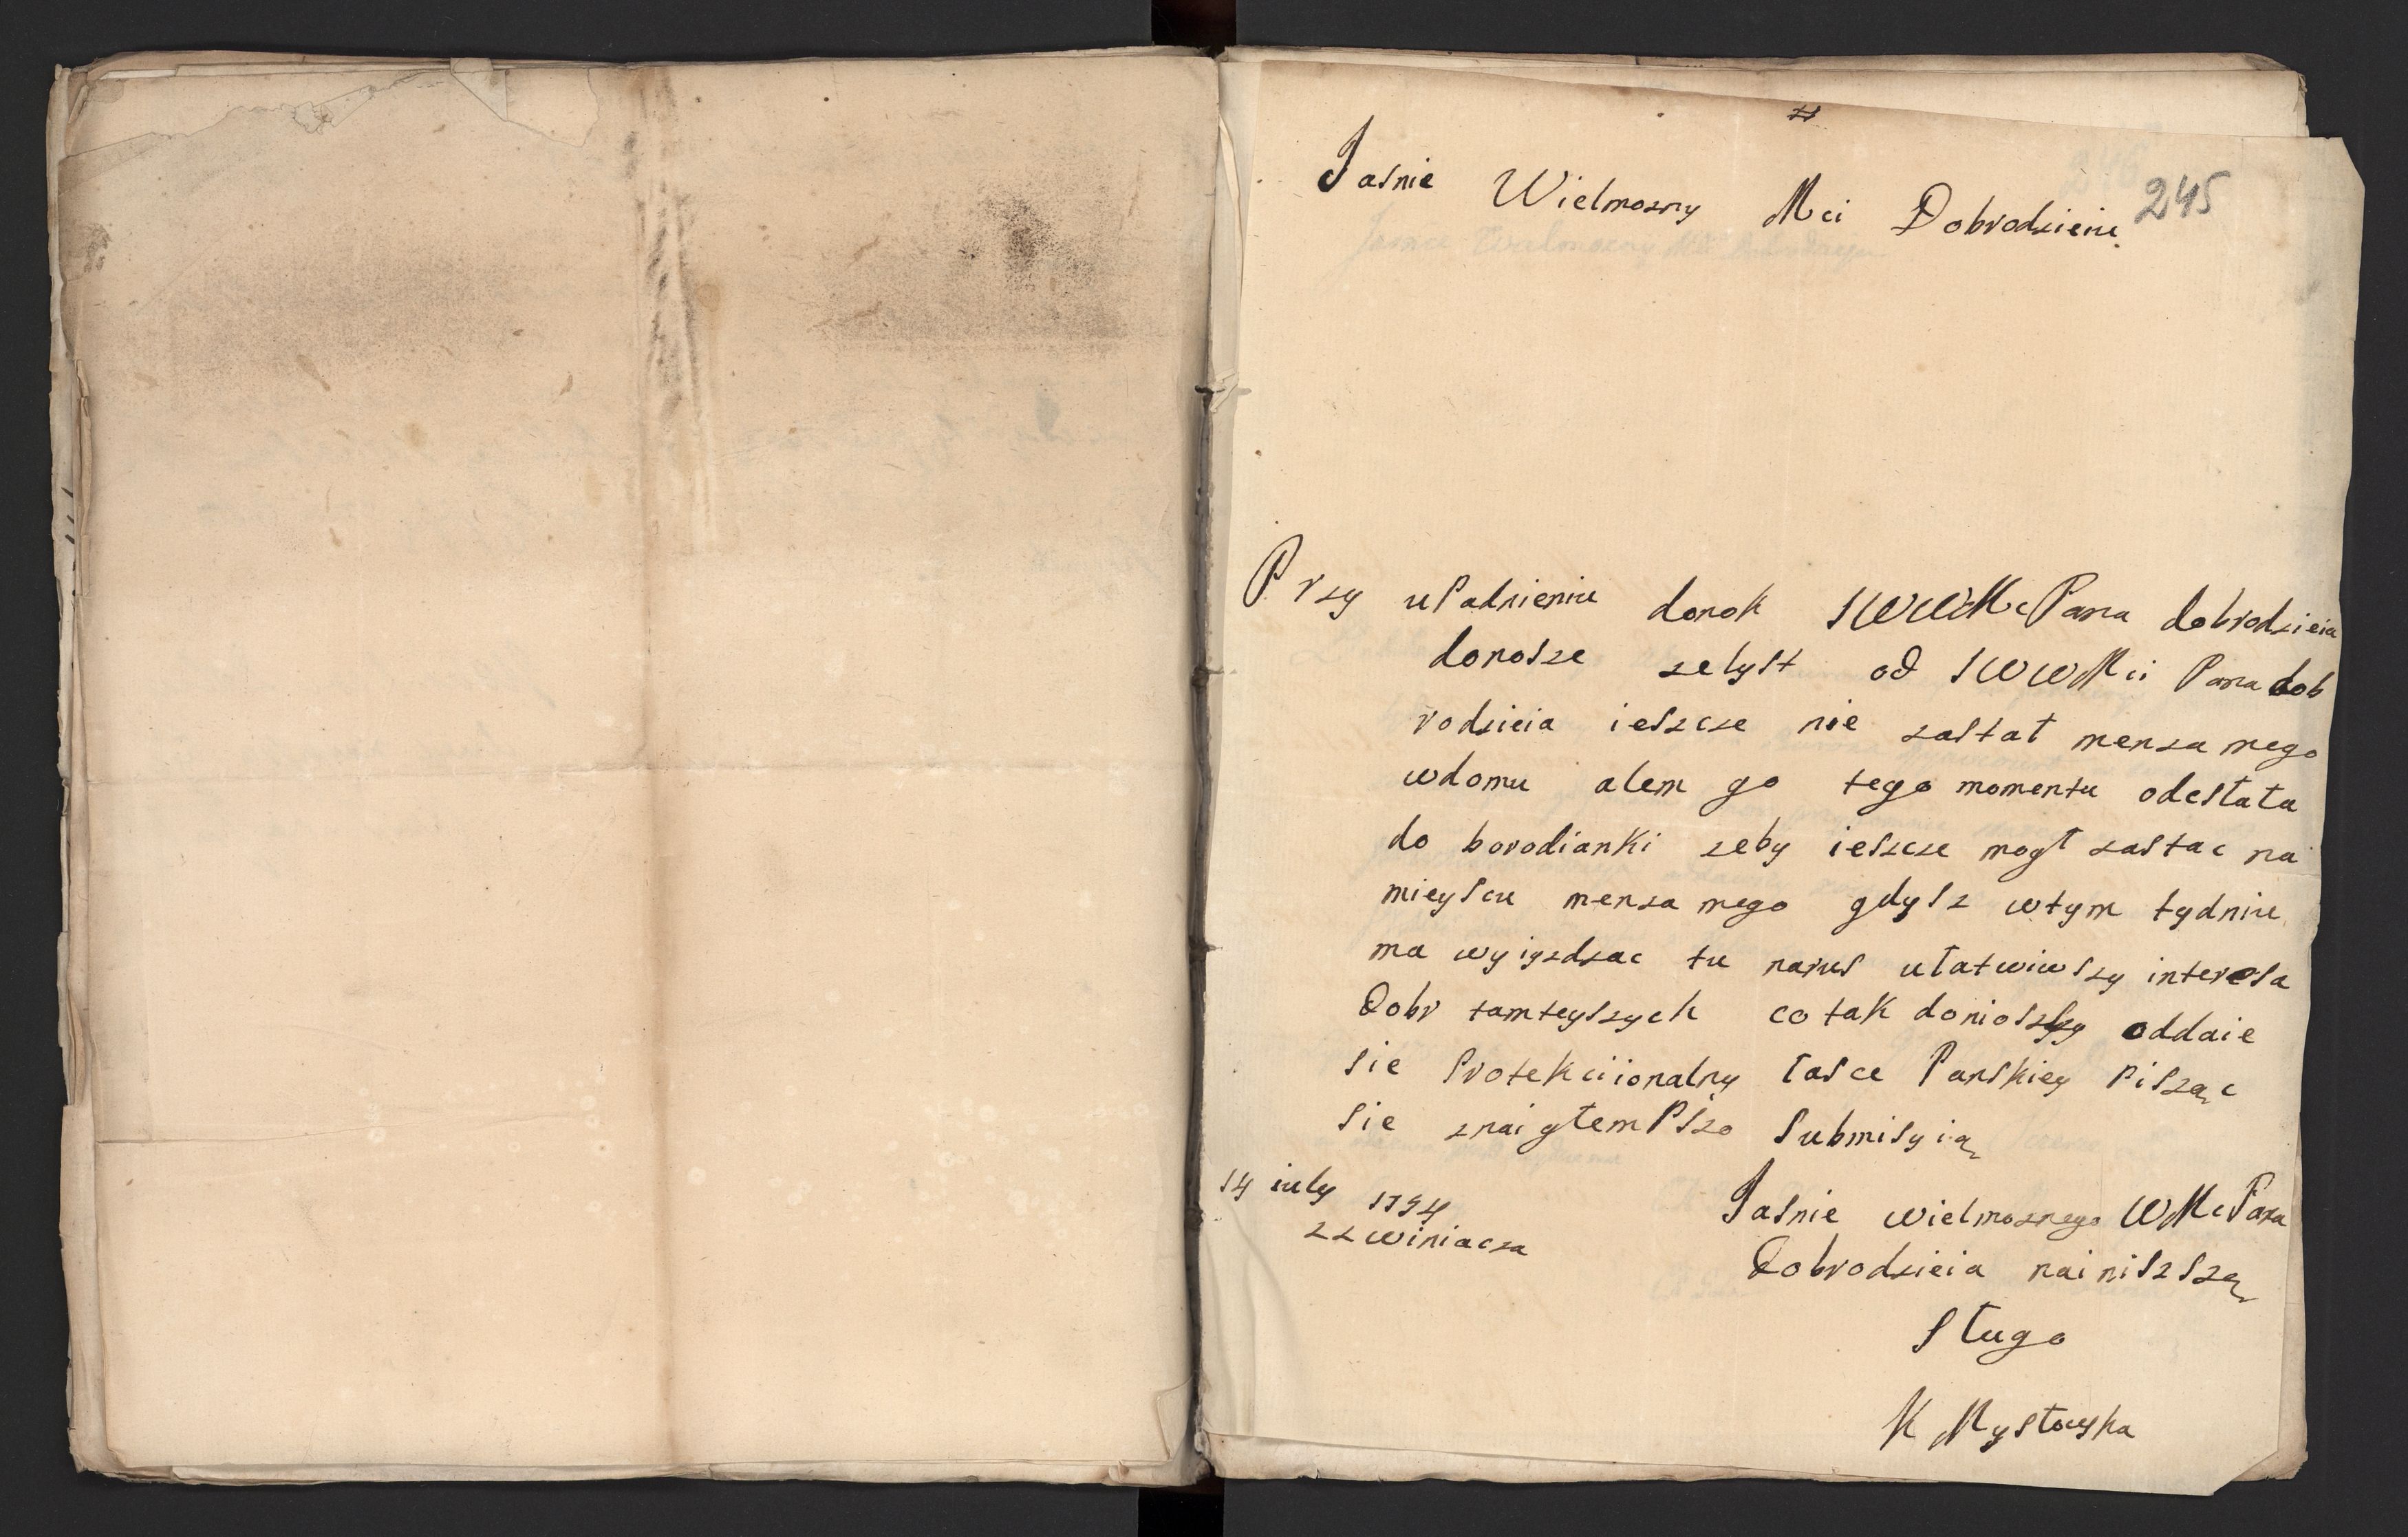 Jasnie Wielmozny Mci Dobrodzieiu
245
Przy upadnieniu donok JWWMcPana dobrodzieia
donosze zelyst od JWWMci Pana dob
rodzieia ieszcze nie zastał menza mego
wdomu alem go tego momentu odesłała
do borodianki zeby ieszcze mogł zastac na
mieyscu menza mego gdysz wtym tydniu
ma wyiyzdzac tu narus ułatwiwszy interesa
Dobr tamteyszych co tak doniozszy oddaie
sie protekciionalny łasce Panskiey pisząc
sie znaigłempszo submisyią
14 iuly 1794
zzwiniacza
Jasnie wielmoznego WMcPana
Dobrodzieia nainiszszą
sługo
K Mysłowska